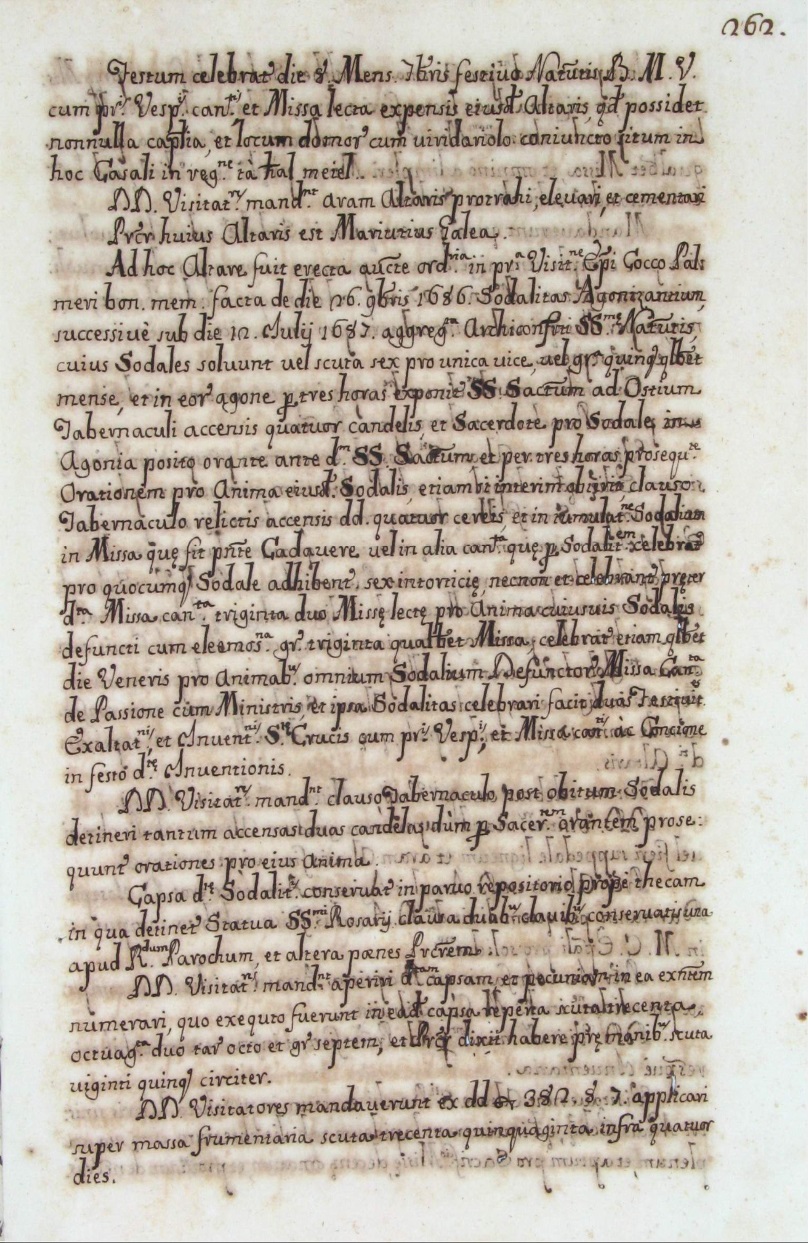 262.
Festum celebrat̃ die 8. Mens. 7bris festivo Natĩtis B. M. V.
cum prĩs Vesp: cant: et Missa lecta expensis eiusd̃ Altaris, qd̃ possidet
nonnulla capĩlia, et locum domor̃ cum viridariolo coniuncto situm in
hoc Casali in regne ta hal metel.
DD. Visitat: mandnt aram Altaris protrahi, elevari, et cementari
Prcr̃ huius Altaris est Mariutius Galea.
Ad hoc Altare fuit erecta aucte ordria in pra Visit:ne Epĩ Cocco Pal:
meri bon. mem. facta de die 26. 9bris 1686. Sodalitas Agonizantium,
successivè sub die 12. Julij 1687. aggregta Archiconfrĩ SS:me Natĩtis,
cuius Sodales solvunt vel scuta sex pro unica vice, vel gra quinq qlbẽt
mense, et in eor̃ agone p tres horas exponit̃ SS. Sacr̃um ad Ostium
Tabernaculi accensis quatuor candelis et Sacerdote pro Sodale in
Agonia posito orante ante dm SS. Sacr̃um, et per tres horas prosequte
Orationem pro Anima eiusd̃ Sodalis, etiamsi interim obierit clauso
Tabernaculo relictis accensis dd. quatuor cereis et in tumulatne Sodalium
in Missa quę fit pñte Cadavere vel in alia canta quę p Sodalitem celebrat̃
pro quocumq Sodale adhibent̃ sex intorticię, necnon et celebrant̃ pręter
dta Missa canta triginta duo Missę lectę pro Anima cuiusvis Sodalis
defuncti cum eleemosna gr: triginta qualbet Missa, celebrat̃ etiam qlbẽt
die Veneris pro Animabs omnium Sodalium Defunctor̃ Missa Canta
de Passione cum Ministris, et ipsa Sodalitas celebrari facit duas Festivit:es
Exaltatnis, et Inventnis Ste Crucis cum prĩs Vesp: et Missa canta ac Concione
in festo dte Inventionis.
DD. Visitat: mandnt clauso Tabernaculo, post obitum Sodalis
detineri tantum accensas duas candelas, dum p Sacer:tem orantem prose:
quunt̃ orationes pro eius Anima.
Capsa dte Sodalit: conservat̃ in parvo repositorio prope thecam
in qua detinet̃ Statua SSmi Rosarij clausa duabs clavibs conservatis una
apud R:dum Parochum, et altera pænes Prcr̃em.
DD. Visitat: mandnt aperiri dtam capsam, et pecuniam in ea exñtem
numerari, quo exequto fuerunt in ead̃ capsa reperta scuta trecenta
octuagta duo tar̃ octo et gr: septem, et Prcr̃ dixit habere prę manibs scuta
viginti quinq circiter.
DD. Visitatores mandaverunt ex dd 382. 8. 7. applicari
super massa frumentaria scuta trecenta quinquaginta infra quatuor
dies.